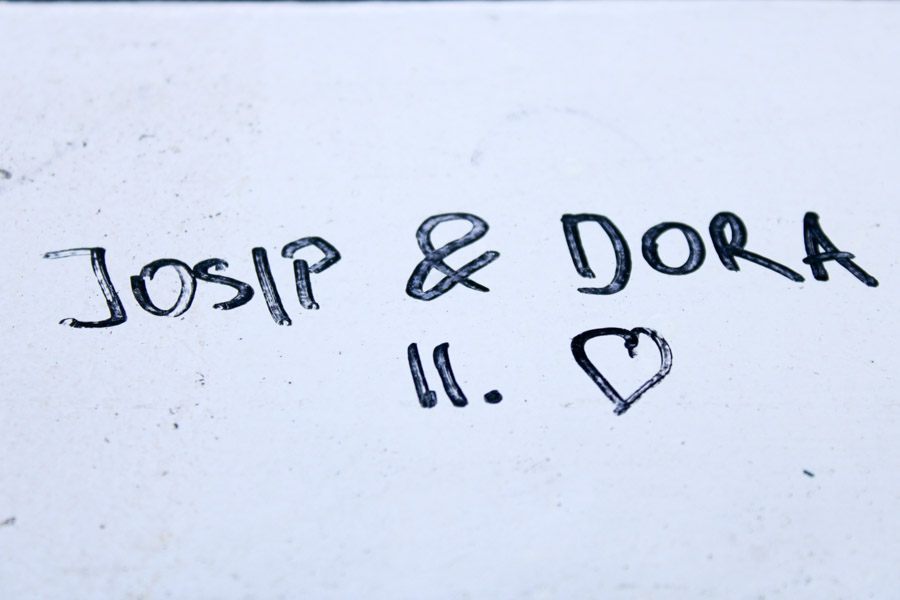 JOSIP & DORA
11. ♡